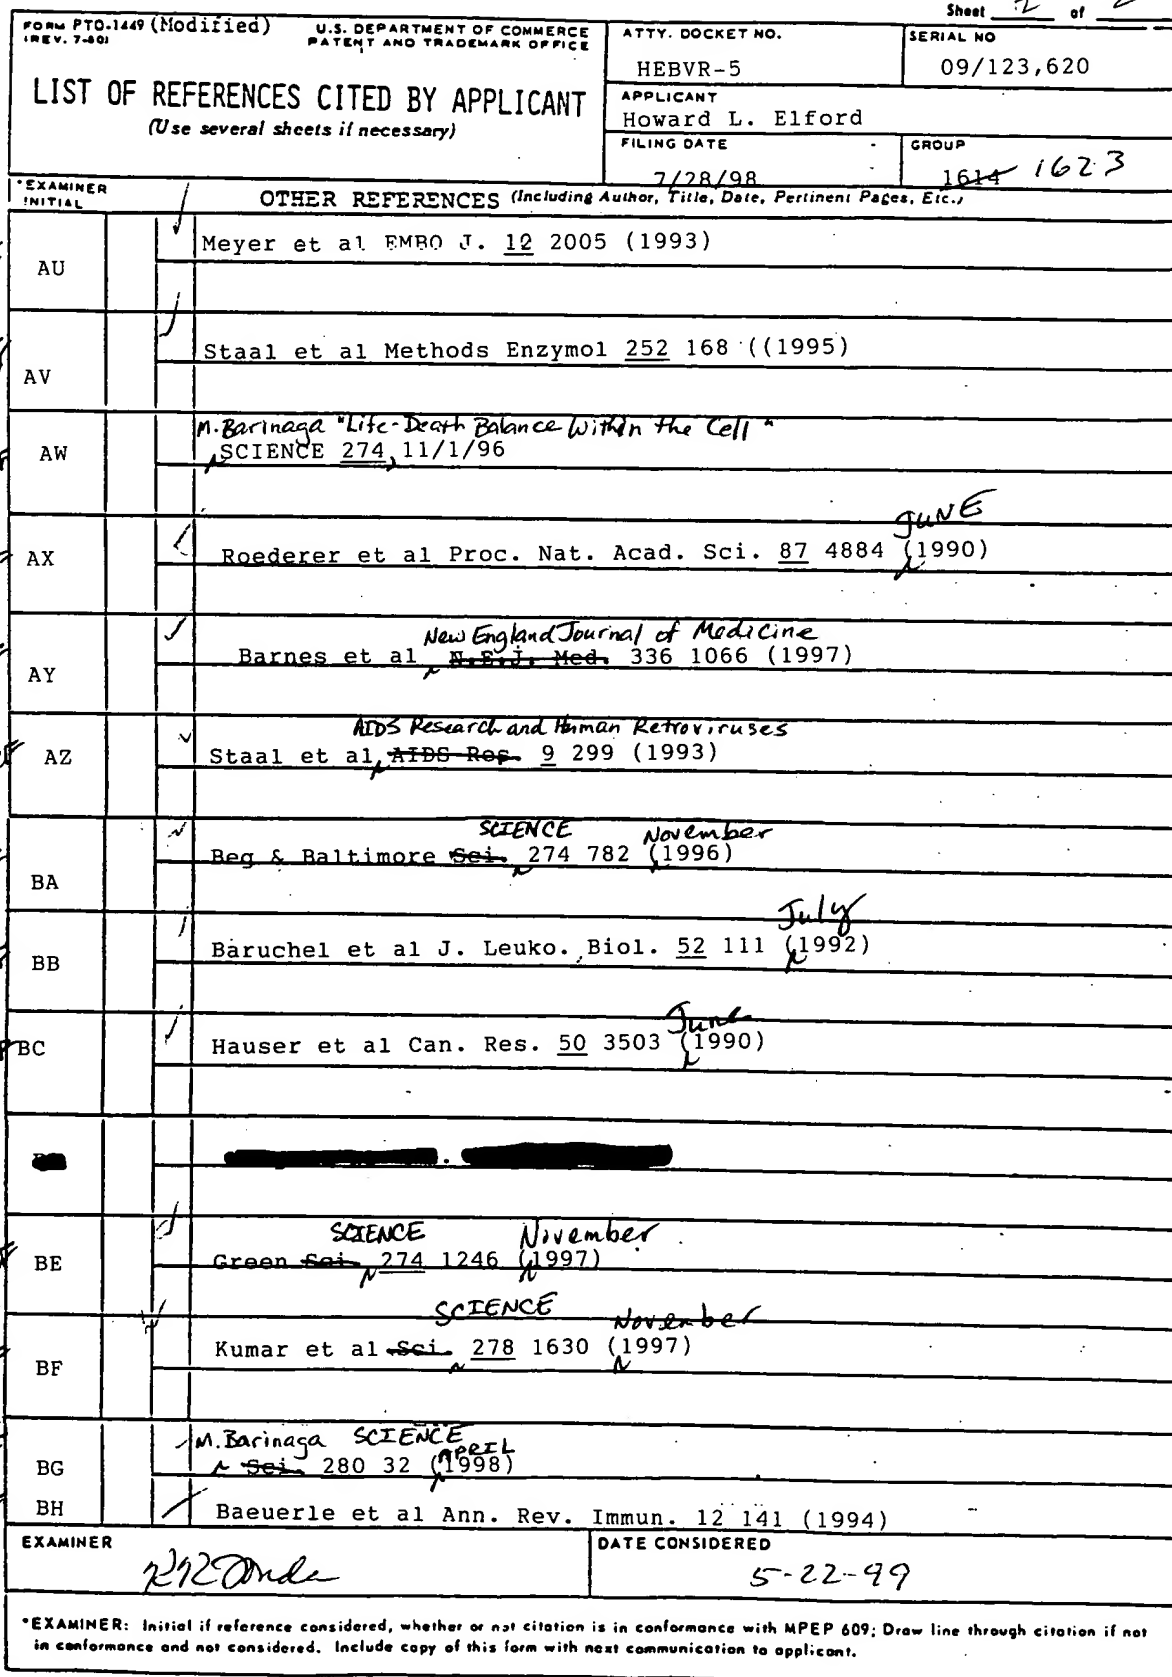 Sheet 2 of 2
FORM PTO-1449 (Modified)
(REV. 7-80)
U.S. DEPARTMENT OF COMMERCE
PATENT AND TRADEMARK OFFICE
LIST OF REFERENCES CITED BY APPLICANT
(Use several sheets if necessary)
ATTY. DOCKET NO.
HEBVR-5
SERIAL NO
09/123,620
APPLICANT
Howard L. Elford
FILING DATE
7/28/98
GROUP
1614 1623
*EXAMINER
INITIAL
OTHER REFERENCES (Including Author, Title, Date, Pertinent Pages, Etc.)
AU Meyer et al EMBO J. 12 2005 (1993)
AV Staal et al Methods Enzymol 252 168 ((1995)
M. Barinaga "Life-Death Balance Within the Cell"
AW SCIENCE 274, 11/1/96
JUNE
AX Roederer et al Proc. Nat. Acad. Sci. 87 4884 (1990)
New England Journal of Medicine
AY Barnes et al N.E.J. Med. 336 1066 (1997)
AIDS Research and Human Retroviruses
AZ Staal et al, AIDS Res. 9 299 (1993)
SCIENCE November
BA Beg & Baltimore Sci. 274 782 (1996)
July
BB Baruchel et al J. Leuko. Biol. 52 111 (1992)
June
BC Hauser et al Can. Res. 50 3503 (1990)
SCIENCE November
BE Green Sci. 274 1246 (1997)
SCIENCE November
BF Kumar et al Sci. 278 1630 (1997)
M. Barinaga SCIENCE
APRIL
BG Sci. 280 32 (1998)
BH Baeuerle et al Ann. Rev. Immun. 12 141 (1994)
EXAMINER
DATE CONSIDERED
5-22-99
*EXAMINER: Initial if reference considered, whether or not citation is in conformance with MPEP 609; Draw line through citation if not
in conformance and not considered. Include copy of this form with next communication to applicant.